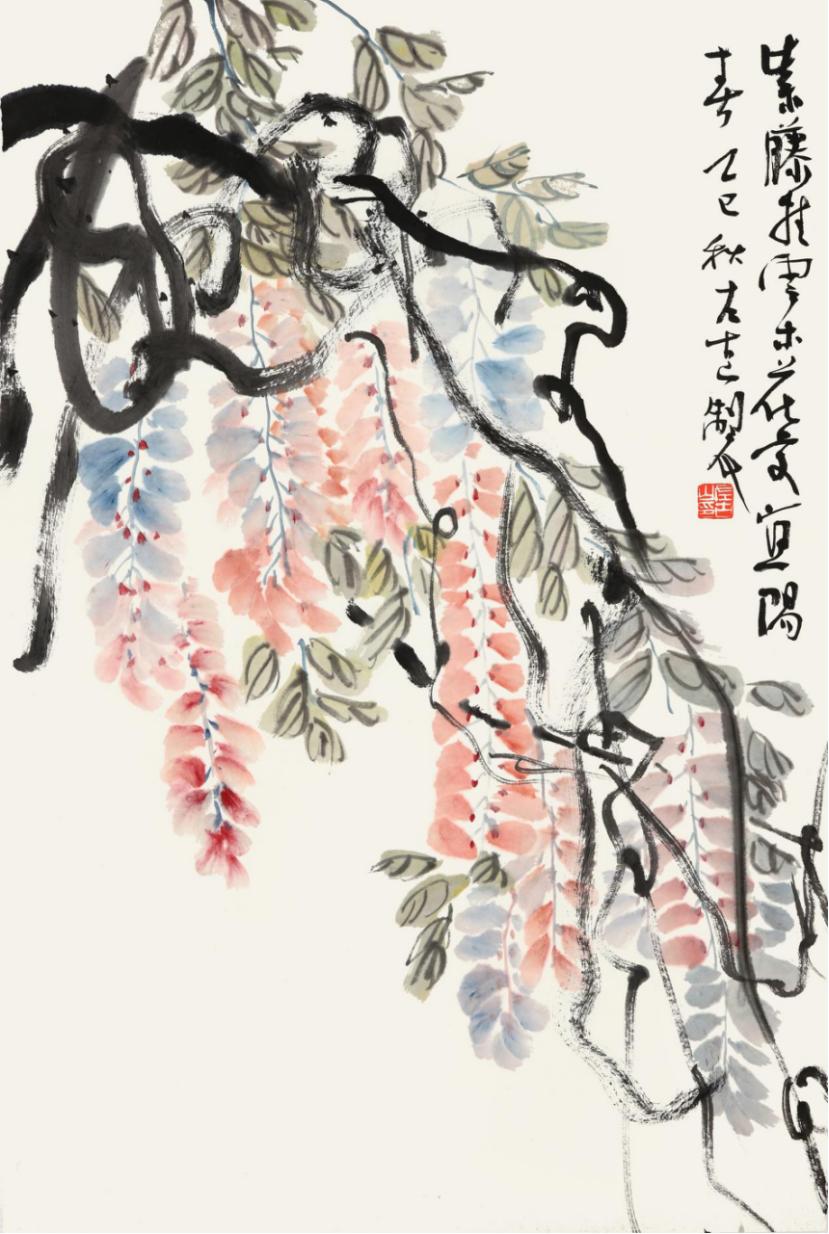 紫藤挂云木花蔓宜阳
春乙巳秋古建制